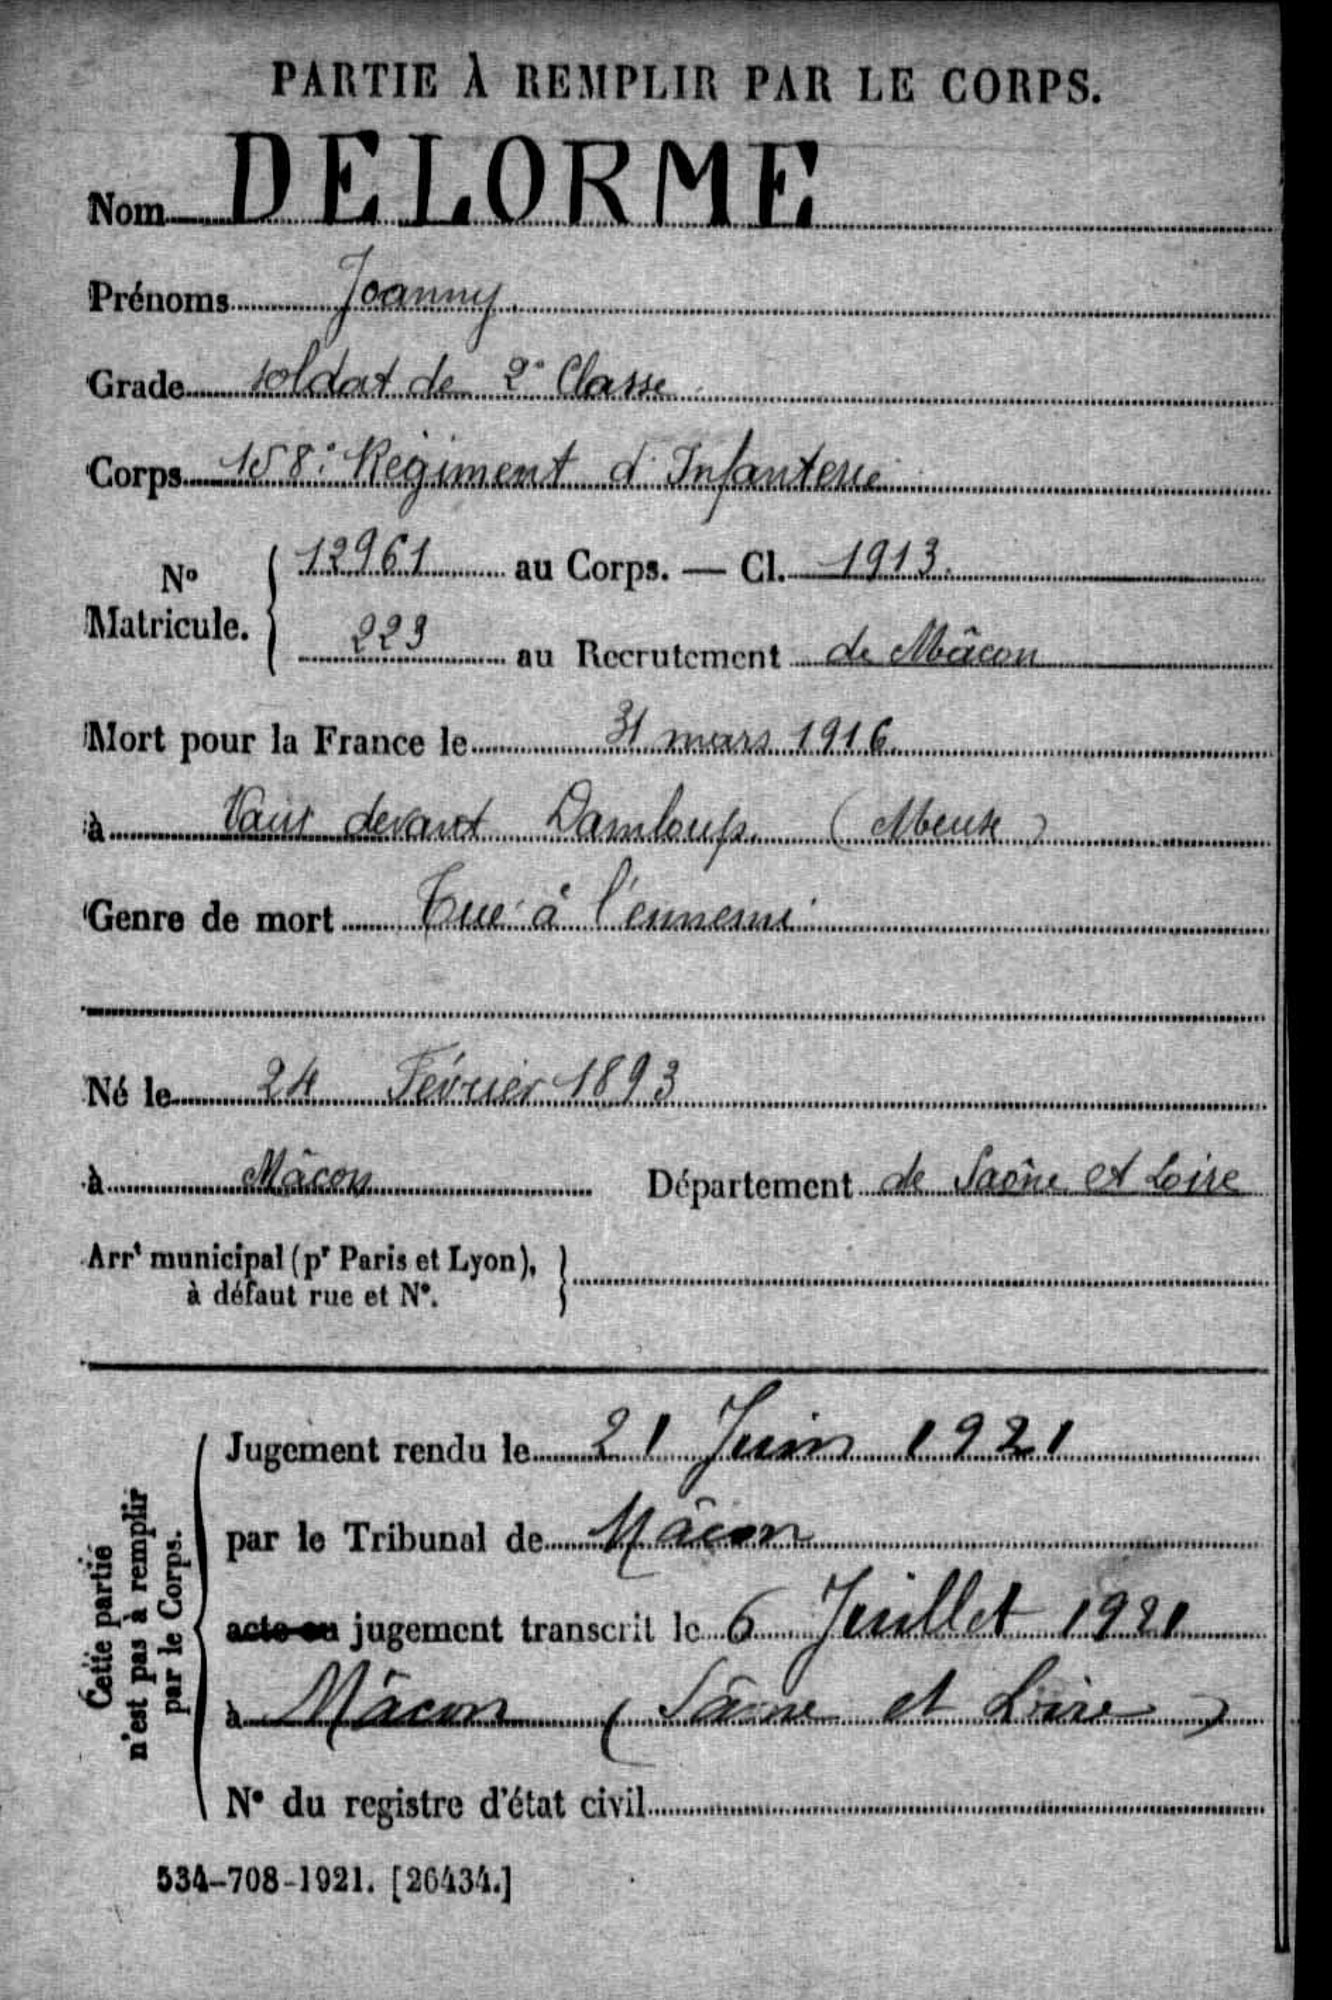 PARTIE À REMPLIR PAR LE CORPS.
Nom DELORME
Prénoms Joanny
Grade soldat de 2e Classe
Corps 158e Régiment d'Infanterie
No Matricule. { 12961 au Corps. — Cl. 1913.
223 au Recrutement de Mâcon
Mort pour la France le 31 mars 1916
à Vaux devant Damloup (Meuse)
Genre de mort Tué à l'ennemi
Né le 24 Février 1893
à Mâcon Département de Saône et Loire
Arrt municipal (pr Paris et Lyon),
à défaut rue et No.
Cette partie
n'est pas à remplir
par le Corps.
Jugement rendu le 21 Juin 1921
par le Tribunal de Mâcon
acte ou jugement transcrit le 6 Juillet 1921
à Mâcon (Saône et Loire)
No du registre d'état civil
534-708-1921. [26434.]